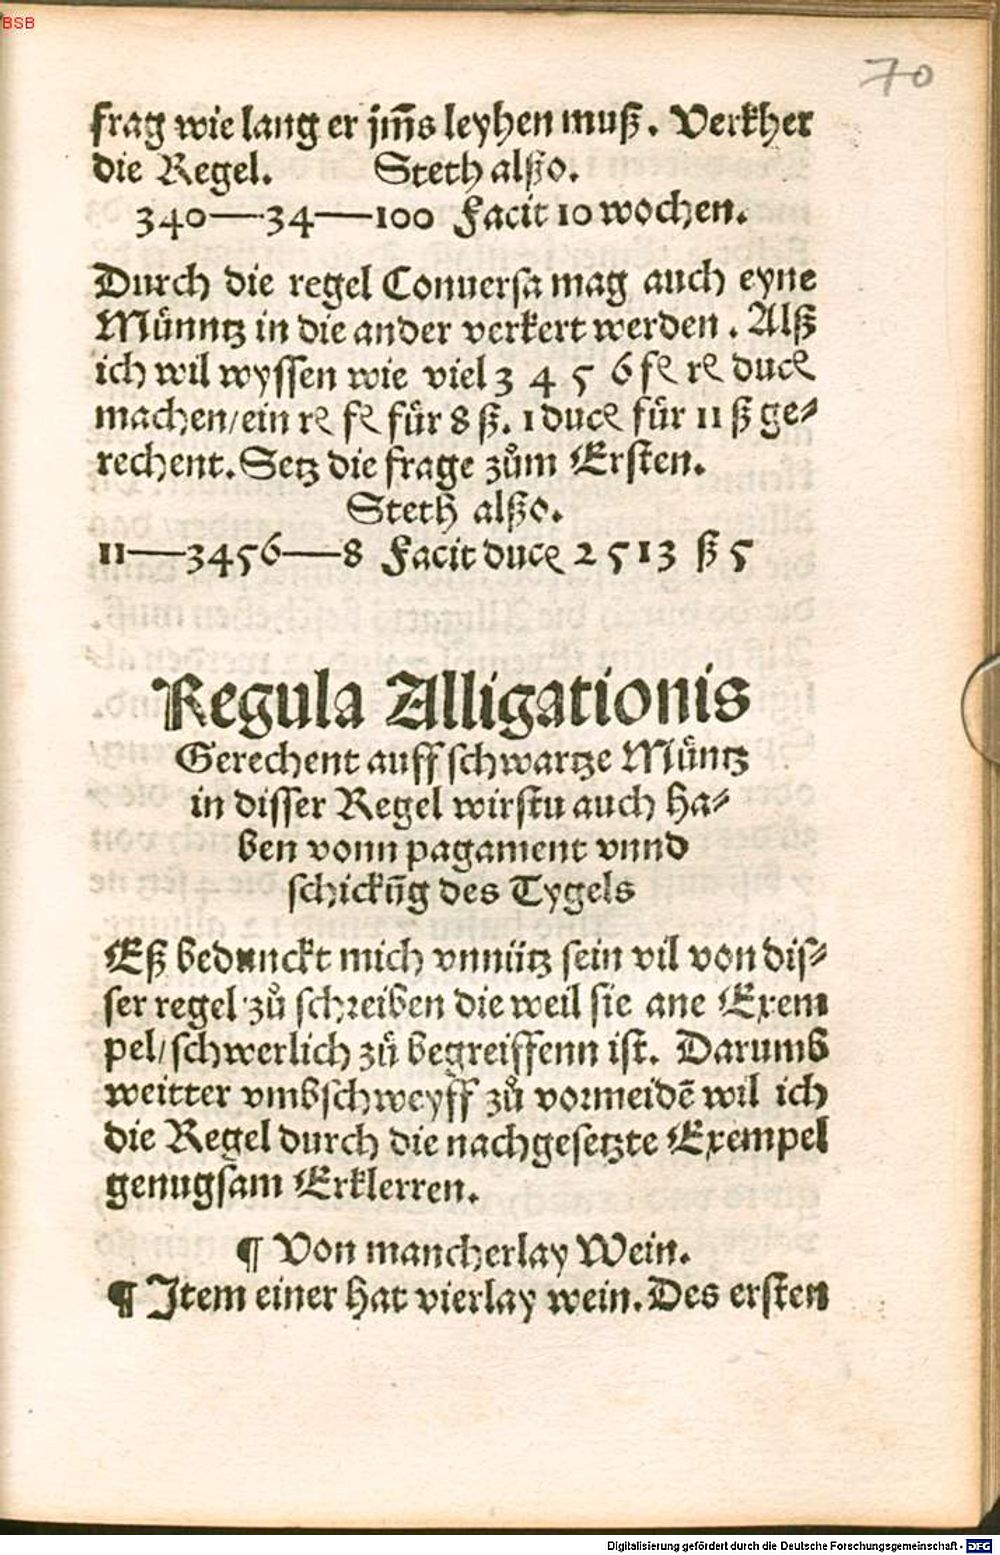 BSB
70
frag wie lang er jm̄s leyhen muß. Verkher
die Regel. Steth alßo.
340—34—100 Facit 10 wochen.
Durch die regel Conuersa mag auch eyne
Münntz in die ander verkert werden. Alß
ich wil wyssen wie viel 3 4 5 6 fꝭ rꝭ ducꝭ
machen/ein rꝭ fꝭ für 8 ß. 1 ducꝭ für 11 ß ge⸗
rechent. Setz die frage zům Ersten.
Steth alßo.
11—3456—8 Facit ducꝭ 2513 ß 5
Regula Alligationis
Gerechent auff schwartze Müntz
in disser Regel wirstu auch ha⸗
ben vonn pagament vnnd
schickūg des Tygels
Eß bedunckt mich vnnütz sein vil von dis⸗
ser regel zů schreiben die weil sie ane Exem
pel/schwerlich zů begreiffenn ist. Darumb
weitter vmbschweyff zů vormeidē wil ich
die Regel durch die nachgesetzte Exempel
genugsam Erklerren.
¶ Von mancherlay Wein.
¶ Item einer hat vierlay wein. Des ersten
Digitalisierung gefördert durch die Deutsche Forschungsgemeinschaft - DFG